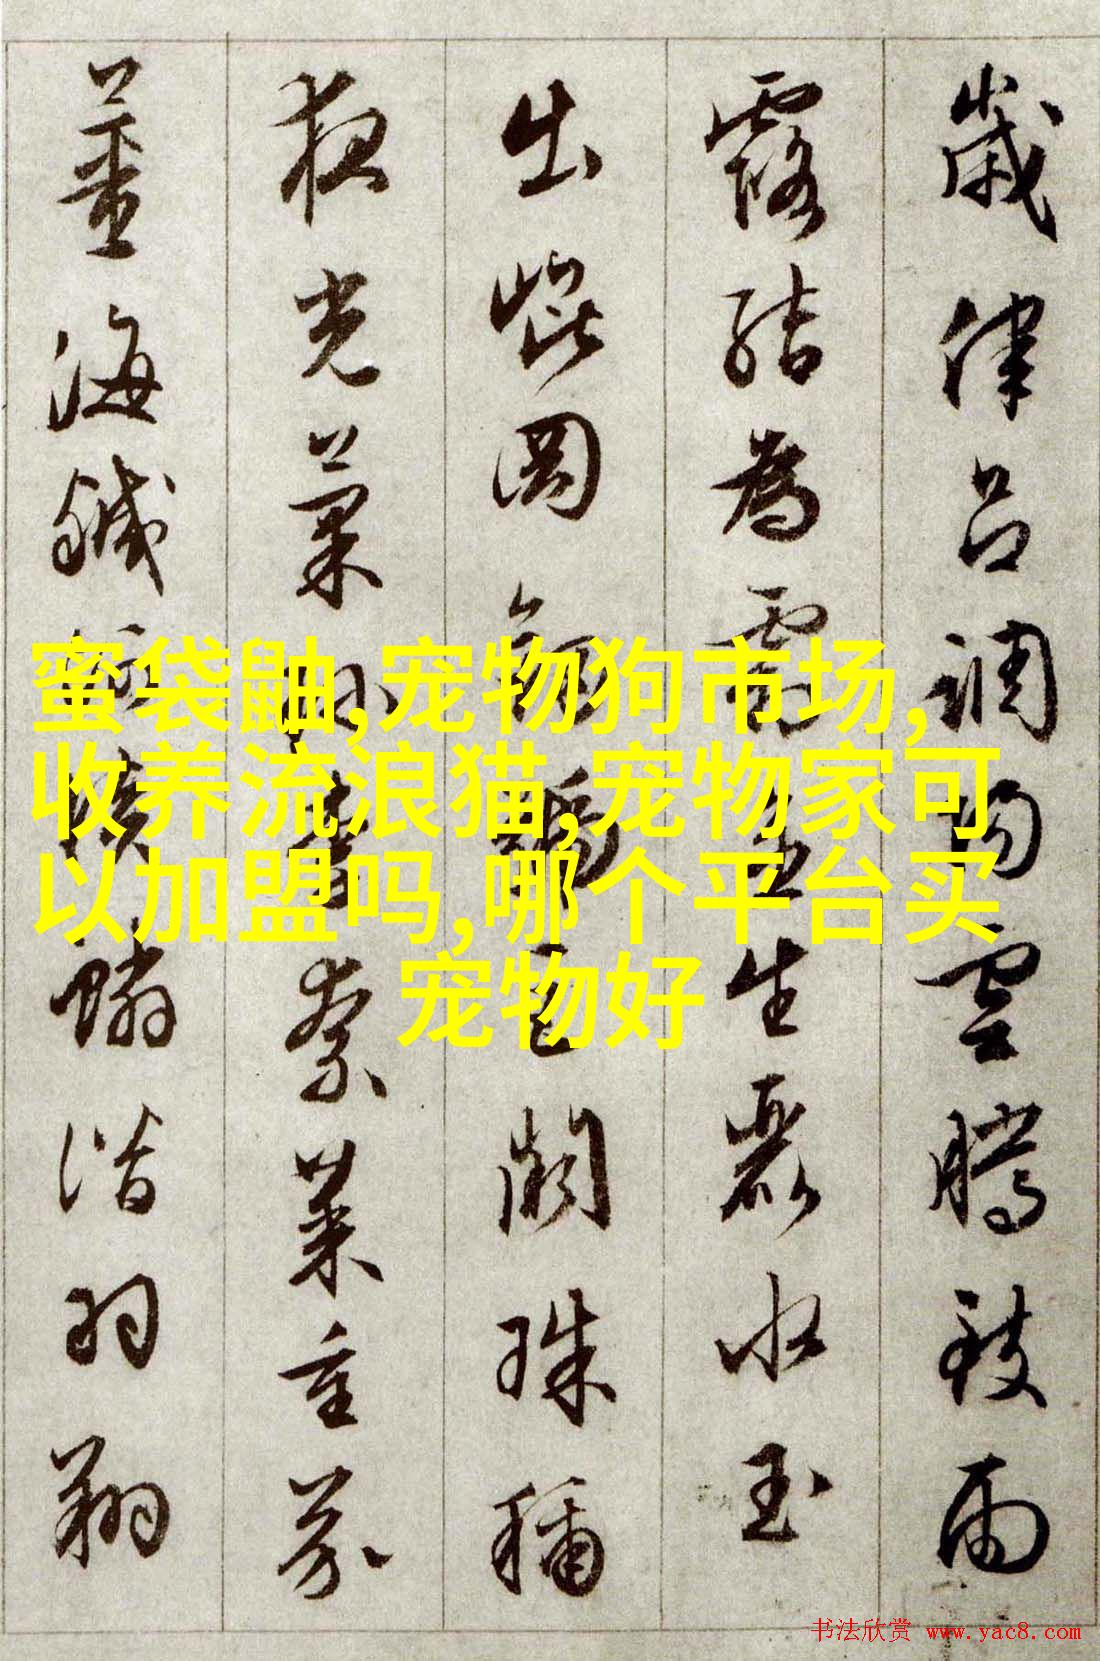 歲律呂調陽雲騰致雨
露結為霜金生麗水玉
出崐岡劍號巨闕珠稱
夜光菓珍李柰菜重芥
薑海鹹河淡鱗潛羽翔
蜜袋鼬,宠物狗市场,
收养流浪猫,宠物家可
以加盟吗,哪个平台买
宠物好
书法欣赏 www.yac8.com